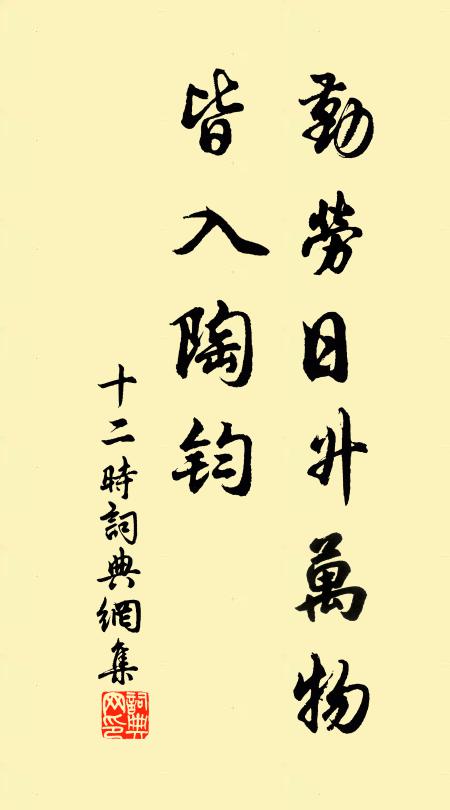 勤勞日升萬物
皆入陶鈞
十二時詞典網集
詞典网印